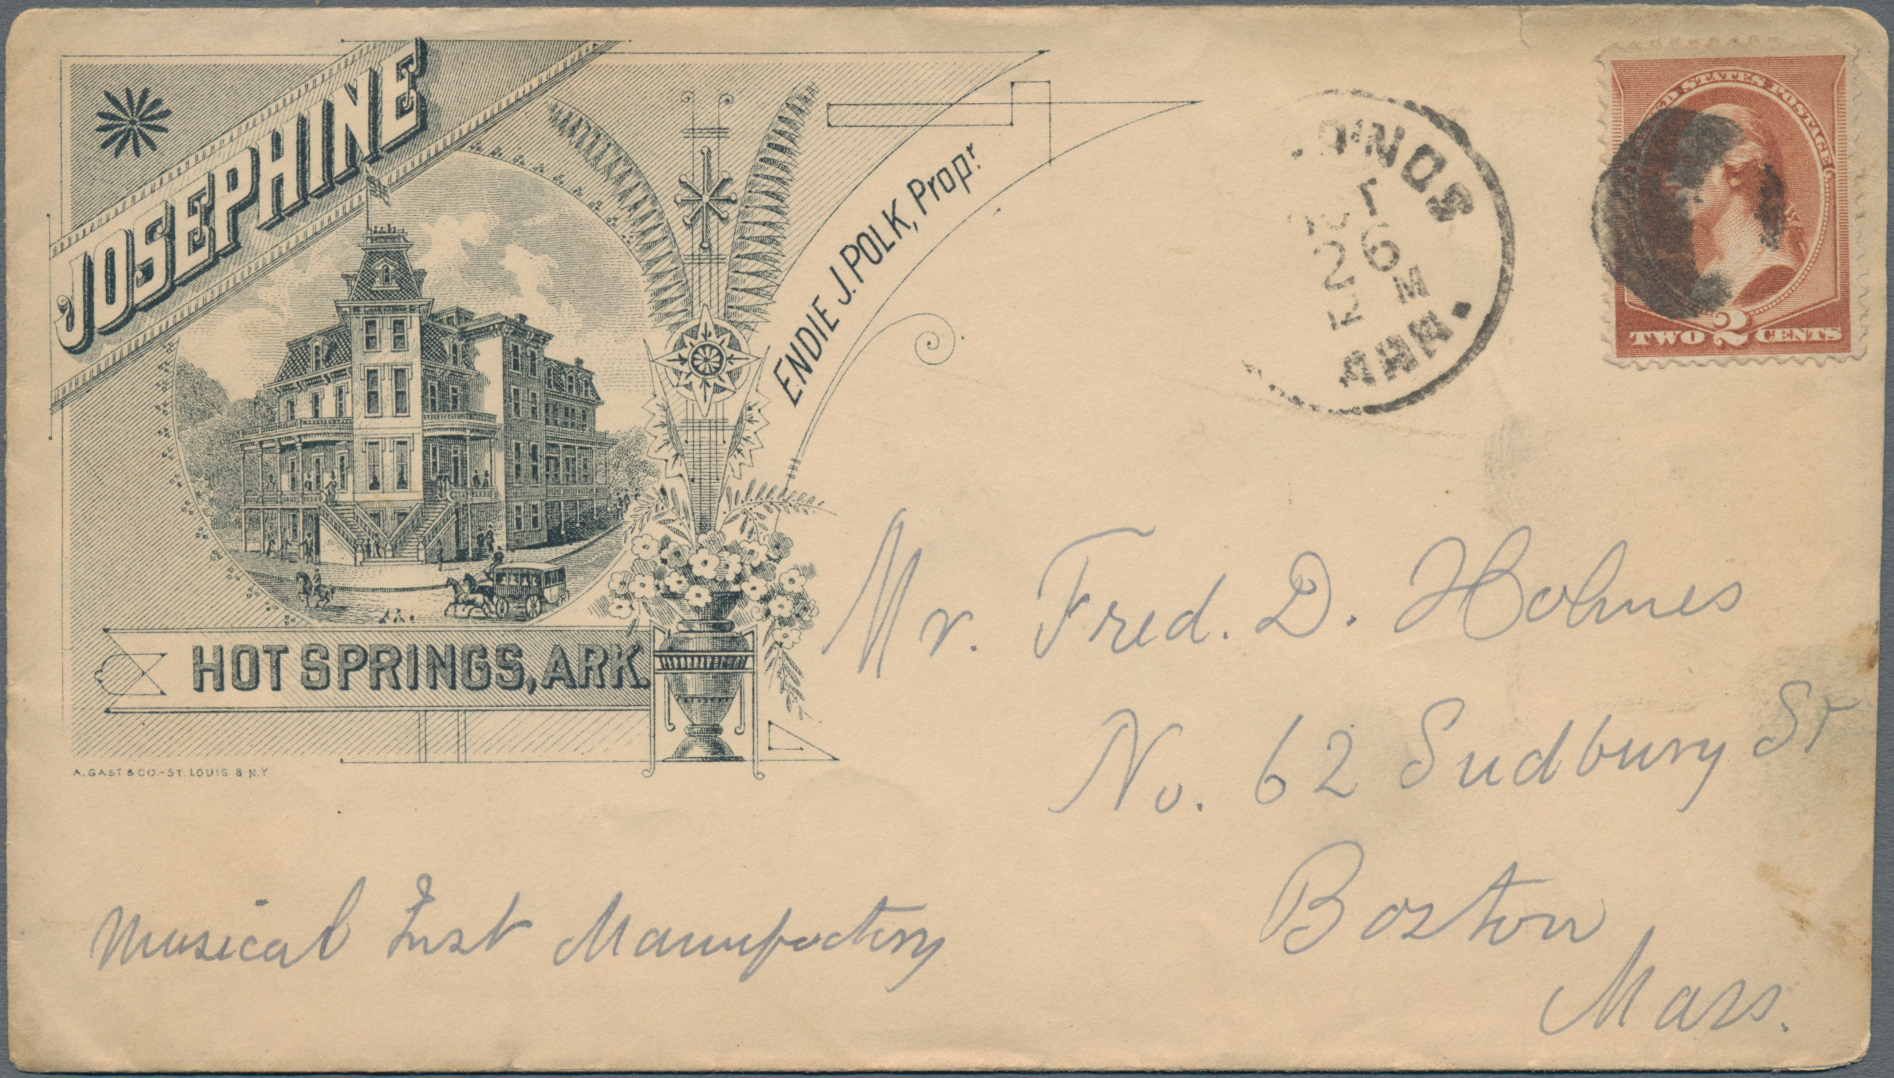 JOSEPHINE
ENDIE J. POLK, Propr.
HOT SPRINGS, ARK.
A. GAST & CO.-ST. LOUIS & N.Y.
26
M
ARK.
STATES POSTAGE
TWO 2 CENTS
Mr. Fred. D. Holmes
No. 62 Sudbury St
Boston
Mass.
Musical Inst Manufactory